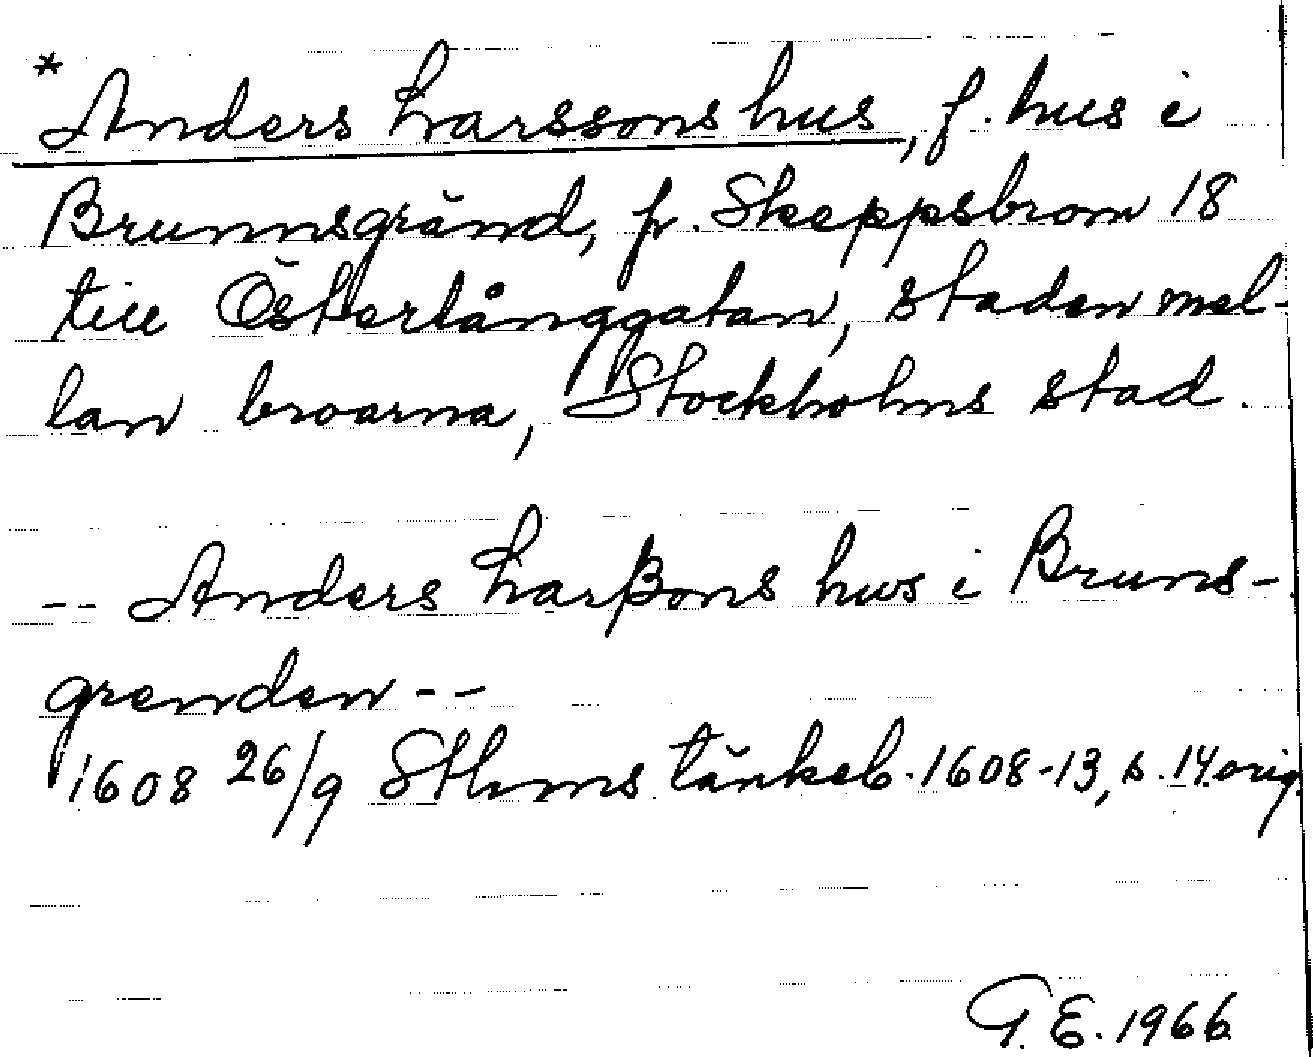 * Anders Larssons hus, f. hus i
Brunnsgränd, fr. Skeppsbron 18
till Österlånggatan, staden mel-
lan broarna, Stockholms stad.
-- Anders Larßons hws i Bruns-
grenden --
1608 26/9 Sthms tänkeb. 1608-13, s. 14. orig.
G. E. 1966